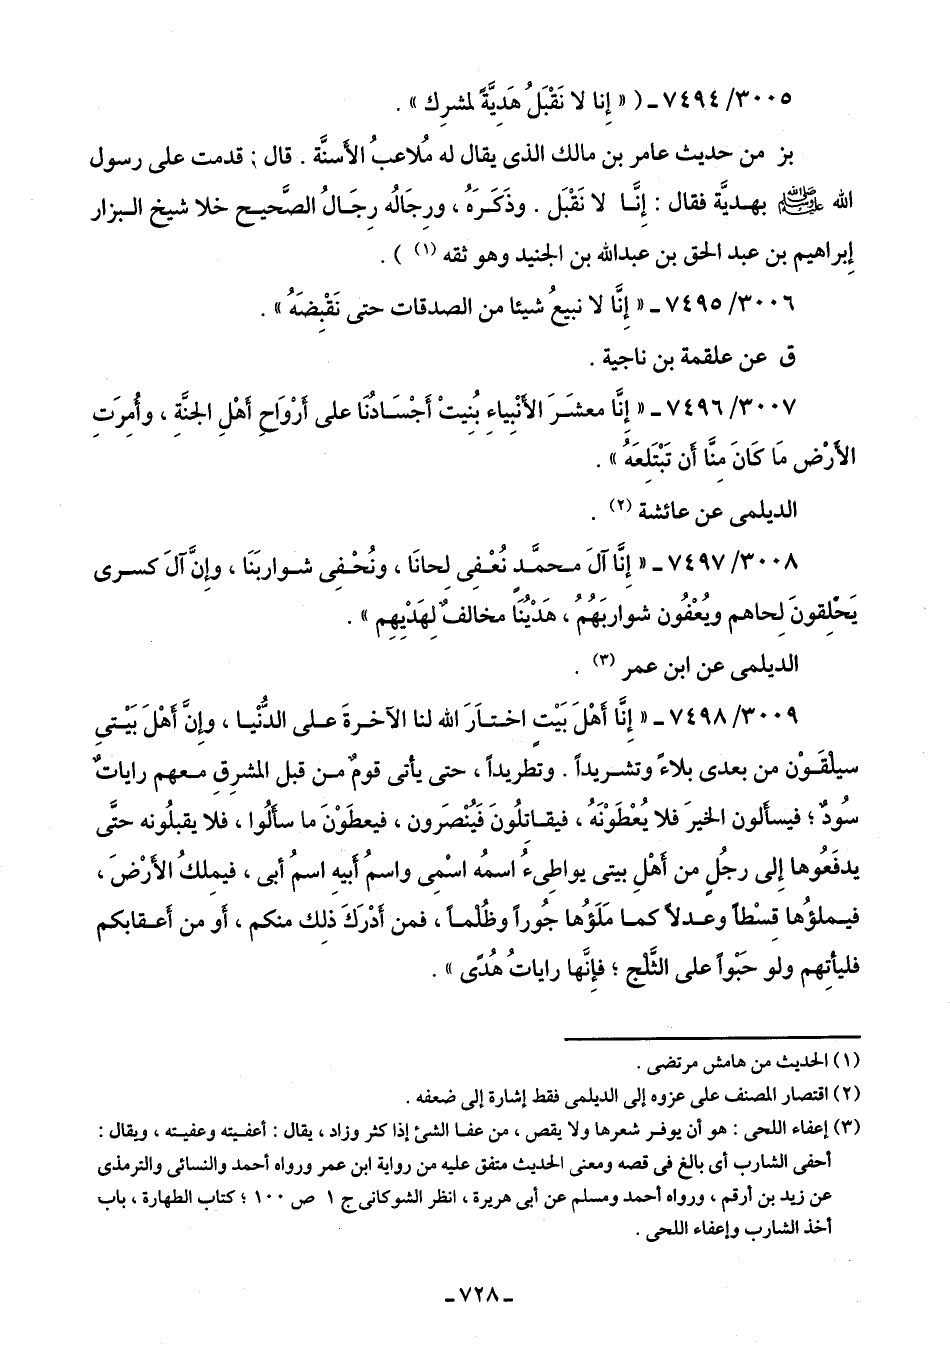 ٧٤٩٤/٣٠٠٥ ـ ( « إِنا لا نَقْبَلُ هَدِيَّةً لمشرِك » .
بز من حديث عامر بن مالك الذى يقال له مُلاعبُ الأسنَّة . قال : قدمت على رسول
الله ﷺ بهديَّة فقال : إِنَّا لا نقْبَل . وذَكَرَهُ ، ورِجالُه رِجَالُ الصَّحيح خلا شيخ البزار
إِبراهيم بن عبد الحق بن عبدالله بن الجنيد وهو ثقه (١) ) .
٧٤٩٥/٣٠٠٦ ـ « إِنَّا لا نبيعُ شيئا من الصدقات حتى نَقْبِضَهُ » .
ق عن علقمة بن ناجية .
٧٤٩٦/٣٠٠٧ ـ « إِنَّا معشَرَ الأَنْبياءِ بُنِيتْ أجْسَادُنَا على أَرْوَاحِ أَهْلِ الجنَّة ، وأُمِرَتِ
الأَرْض مَا كَانَ مِنَّا أَن تَبْتَلِعَهُ » .
الديلمى عن عائشة (٢) .
٧٤٩٧/٣٠٠٨ ـ « إِنَّا آلَ محمَّدٍ نُعْفِى لحانَا ، ونُحْفِى شواربَنَا ، وإِنَّ آلَ كسرى
يَحْلِقونَ لِحاهم ويُعْفُون شواربَهُمُ ، هَدْيُنَا مخالفٌ لِهَدْيِهِم » .
الديلمى عن ابن عمر (٣) .
٧٤٩٨/٣٠٠٩ ـ « إِنَّا أَهْلَ بَيْتٍ اختَارَ الله لنا الآخرةَ على الدُّنْيا ، وإِنَّ أَهْلَ بَيْتِى
سيلْقَوْن من بعدى بلاءً وتشريداً . وتطريداً ، حتى يأتى قومٌ من قبل المشرِق معهم راياتٌ
سُودٌ ؛ فيسألون الخيرَ فلا يُعْطَوْنَهُ ، فيقاتلُونَ فَيُنْصَرون ، فيعطَوْنَ ما سأَلُوا ، فلا يقبلُونه حتَّى
يدفَعُوها إِلى رجُلٍ من أَهْلِ بيتى يواطِىءُ اسمُه اسْمِى واسمُ أَبِيهِ اسمُ أَبى ، فيملكُ الأَرْضَ ،
فيملؤُها قِسْطاً وعدلاً كما مَلَؤُها جُوراً وظُلْماً ، فمن أَدْرَكَ ذلك منكم ، أَو من أَعقابكم
فليأتهِم ولو حَبْواً على الثَّلْجِ ؛ فإِنَّها راياتُ هُدًى » .
(١) الحديث من هامش مرتضى .
(٢) اقتصار المصنف على عزوه إلى الديلمى فقط إشارة إلى ضعفه .
(٣) إعفاء اللحى : هو أن يوفر شعرها ولا يقص ، من عفا الشئ إذا كثر وزاد ، يقال : أعفيته وعفيته ، ويقال :
أحفى الشارب أى بالغ فى قصه ومعنى الحديث متفق عليه من رواية ابن عمر ورواه أحمد والنسائى والترمذى
عن زيد بن أرقم ، ورواه أحمد ومسلم عن أبى هريرة ، انظر الشوكانى ج ١ ص ١٠٠ ؛ كتاب الطهارة ، باب
أخذ الشارب وإعفاء اللحى .
ـ ٧٢٨ ـ